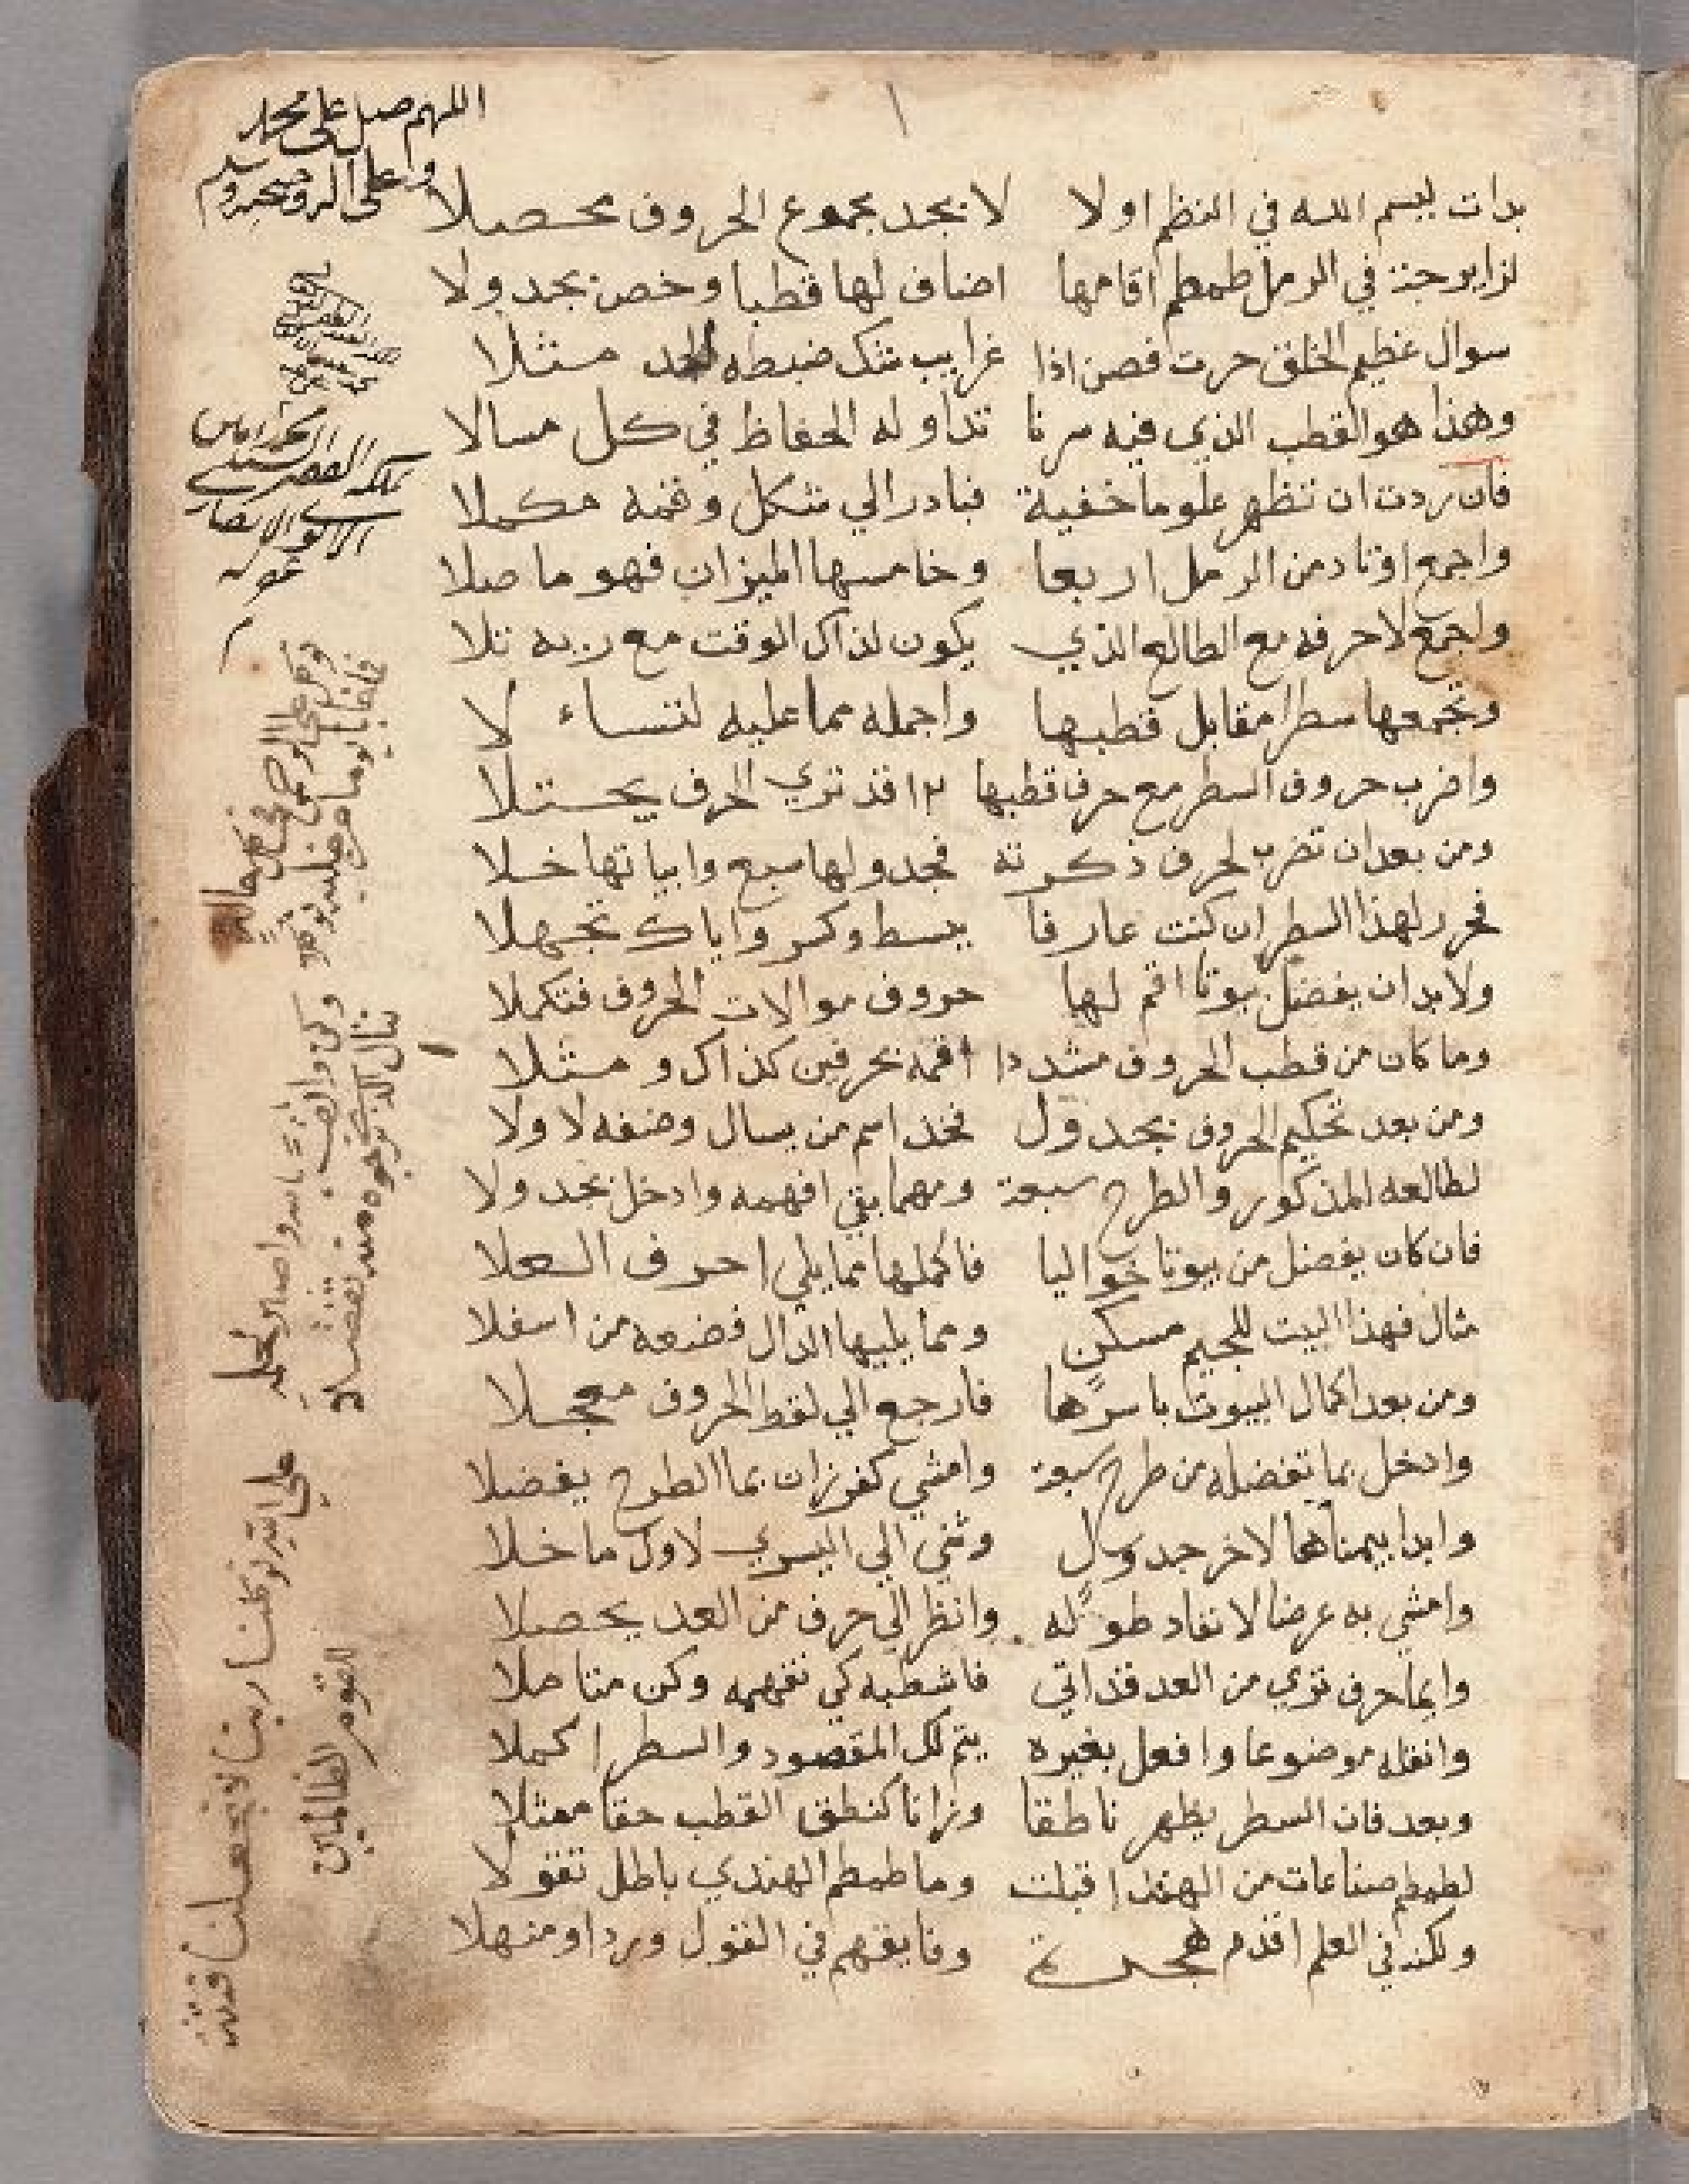 اللهم صل على محمد
وعلى اله وصحبه وسلم
بدات ببسم الله في النظم اولا لابجد مجموع الحروف محصلا
لزايرجة في الرمل طمطم اقامها اضاف لها قطبا وخص بجدولا
سوال عظيم الخلق حزت فصن اذا غرايب شك ضبطه الجد مثلا
وهذا هو القطب الذي فيه سرنا تداوله الحفاظ في كل مسالا
فان ردت ان تظهر علوما خفية فبادر الي شكل وقمه مكملا
واجمع اوتاد من الرمل اربعا وخامسها الميزان فهو ما صلا
واجمع لاحرفه مع الطالع الذي يكون لذاك الوقت مع ربه تلا
وتجمعها سطرا مقابل قطبها واجمله مما عليه لتساءلا
واضرب حروف السطر مع حرف قطبها ١٢ قد تري الحرف يحستلا
ومن بعد ان تضرب لحرف ذكرته فجدولها سبع وابياتها خلا
فحرر لهذا السطر ان كنت عارفا ببسط وكسر واياك تجهلا
ولابد ان يفضل بيوتا اقم لها حروف موالات الحروف فتكملا
وما كان من قطب الحروف مشددا اقمه بحرفين كذاك ومثلا
ومن بعد تحكيم الحروف بجدول فخذ اسم من يسال وضفه لاولا
لطالعه المذكور والطرح سبعة ومهما بقي افهمه وادخل بجدولا
فان كان يفضل من بيوتا خواليا فاكملها مما يلي احرف العلا
مثال فهذا البيت للجيم مسكن ومما يليها الدال فضعه من اسفلا
ومن بعد اكمال البيوت باسرها فارجع الي لقط الحروف معجلا
وادخل بما تفضله من طرح سبعة وامشي كفرزان بما الطرح يفضلا
وابدا بيمناها لاخر جدول وثني الي اليسري لاول ما خلا
وامشي به عرضا لانفاد طوله وانظر الي حرف من العد يحصلا
وايما حرف تري من العد قد اتي فاشطبه كي تفهمه وكن متاملا
وانقله موضوعا وافعل بغيره يتم لك المقصود والسطر اكملا
وبعد فان السطر يظهر ناطقا وزانا كنطق القطب حقا ممثلا
لطمطم صناعات من الهند اقبلت وما طمطم الهندي باطل تقولا
ولكنه في العلم اقدم هجرة وفايقهم في القول وردا ومنهلا
توكل على الرحمن في كل
وكن واثقا بالله واصبر لحكمه
تنال الذي ترجوه منه تفضلا
علي الله توكلنا ربنا لا تجعلنا فتنة
للقوم الظالمين